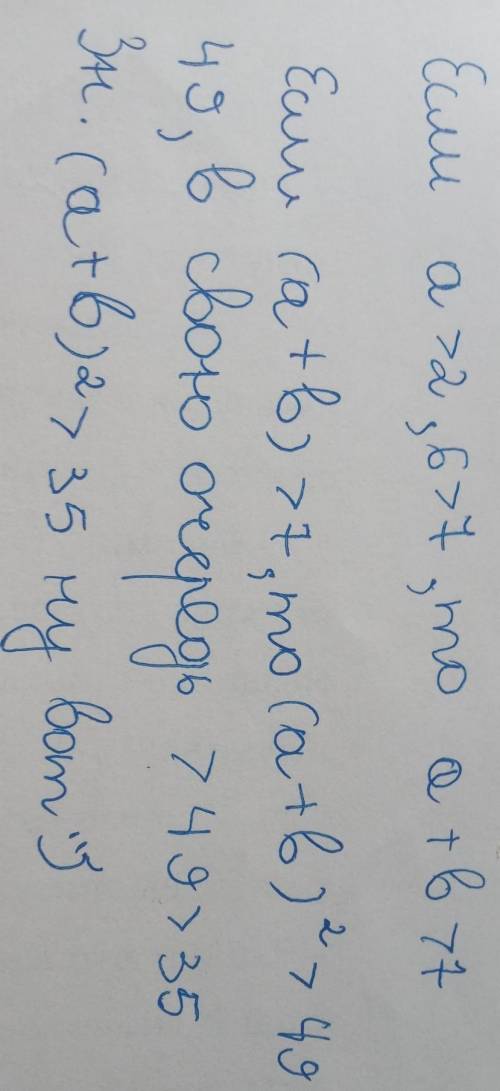 Если a>2, b>7, то a+b>7
Если (a+b)>7, то (a+b)²>49
49, в свою очередь >49>35
Зн. (a+b)²>35 ну вот :)